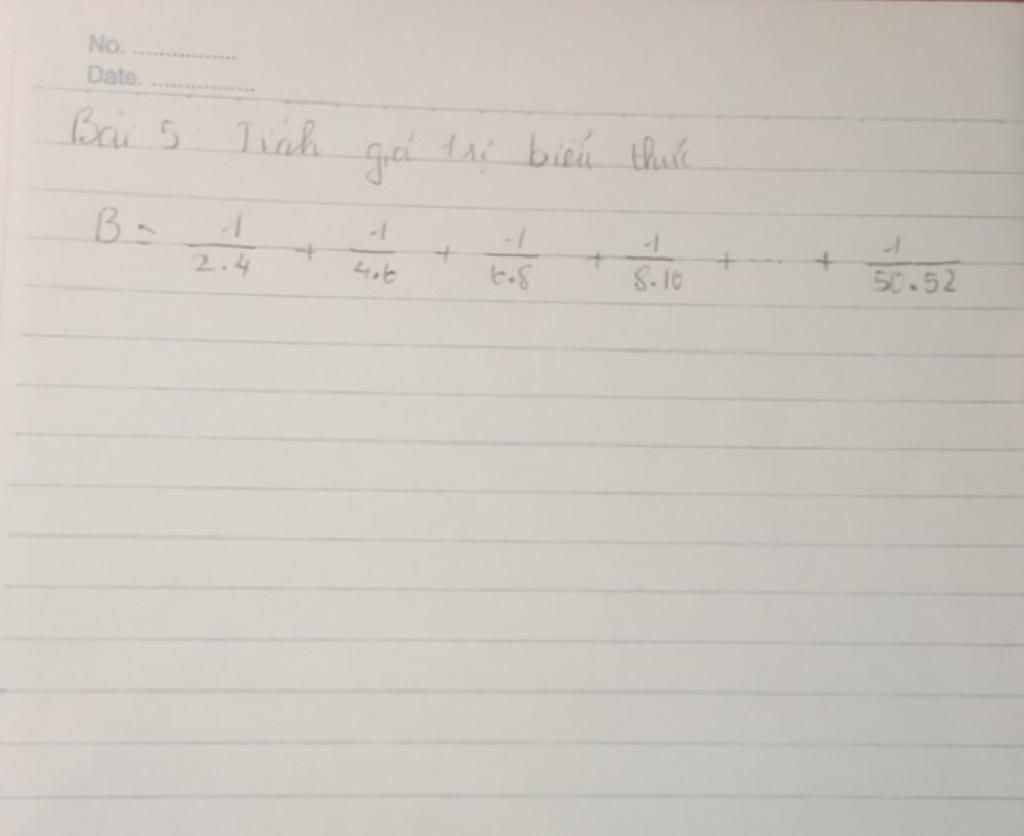 No. ..............
Date. ..............
Bài 5: Tính giá trị biểu thức
B = 1/2.4 + 1/4.6 + 1/6.8 + 1/8.10 + .... + 1/50.52